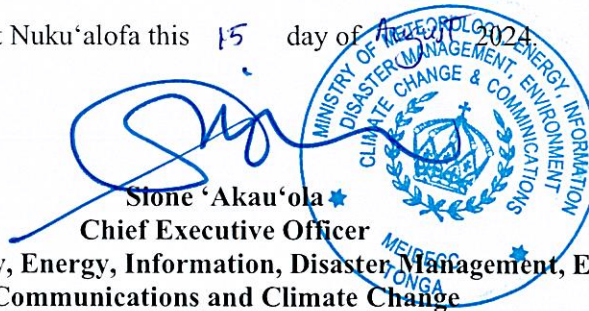 t Nuku‘alofa this 15 day of August 2024
MINISTRY OF METEOROLOGY, ENERGY, INFORMATION
DISASTER MANAGEMENT, ENVIRONMENT
CLIMATE CHANGE & COMMUNICATIONS
Sione ‘Akau‘ola
Chief Executive Officer
MEIDECC
y, Energy, Information, Disaster Management, E
TONGA
Communications and Climate Change